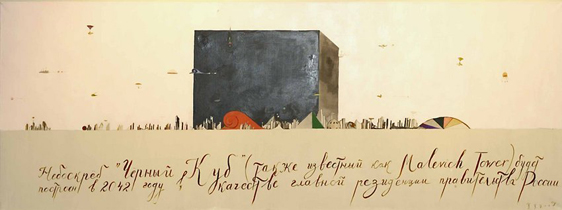 Небоскреб "Черный Куб" (также известный как Malevich Tower) будет
построен в 2042 году в качестве главной резиденции правительства России